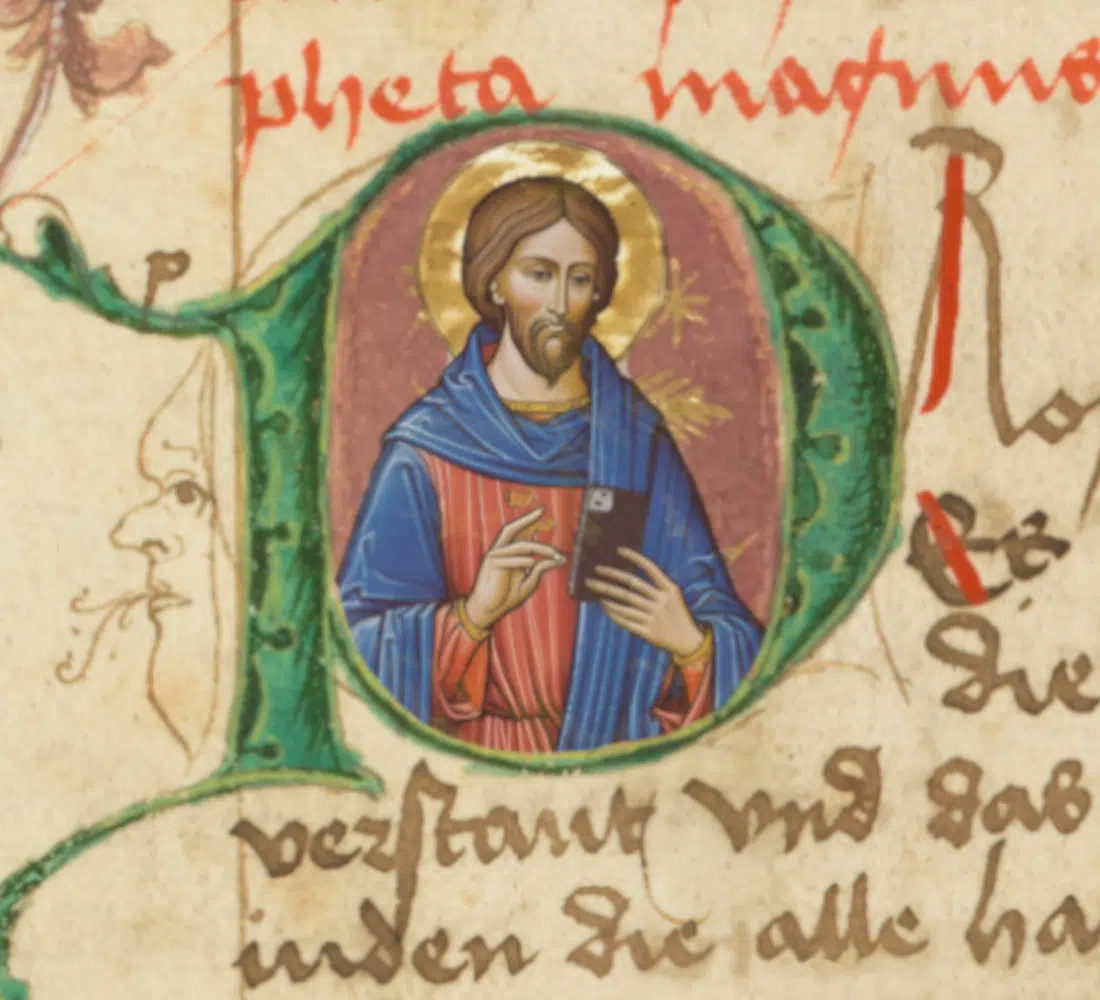 pheta magnus
P Ro
Et
die
verstant vnd das
inden die alle ha